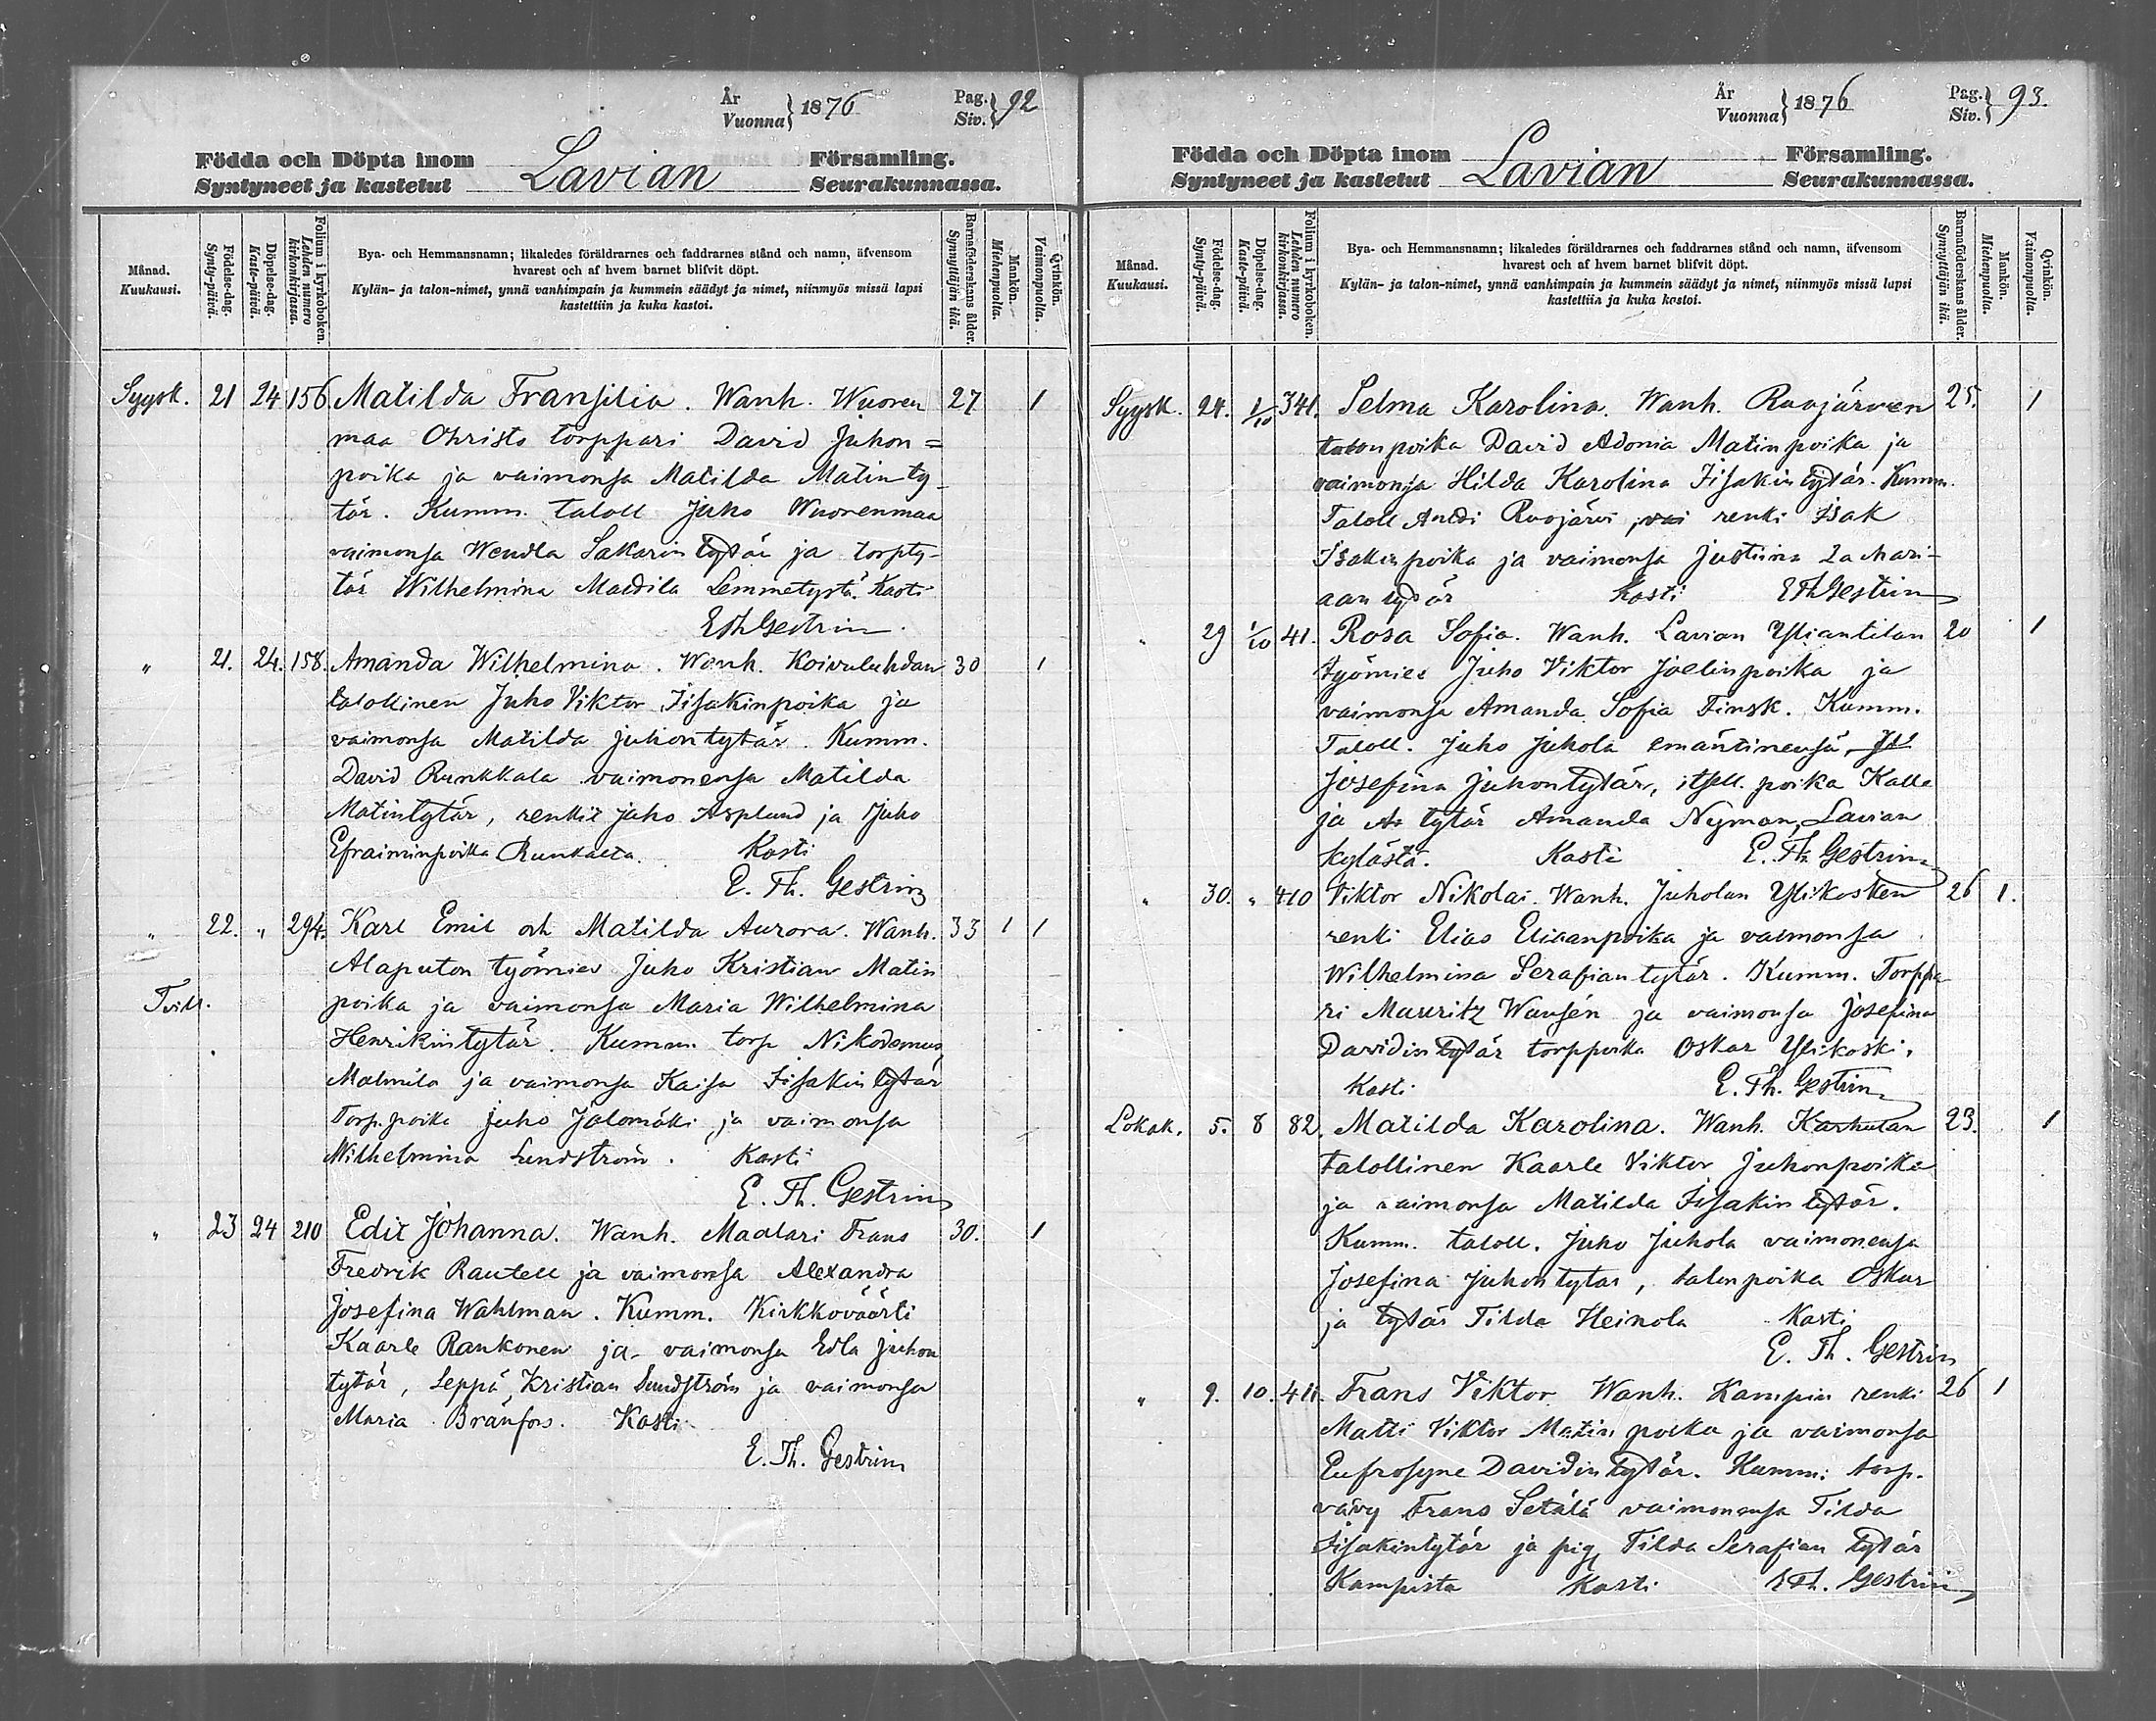 År
Vuonna } 1876
Pag.
Siv. } 92
Födda och Döpta inom
Syntyneet ja kastetut
Lavian
Församling.
Seurakunnassa.
Månad.
Kuukausi.
Födelse-dag.
Synty-päivä.
Döpelse-dag.
Kaste-päivä.
Folium i kyrkoboken.
Lehden numero kirkonkirjassa.
Bya- och Hemmansnamn; likaledes föräldrarnes och faddrarnes stånd och namn, äfvensom
hvarest och af hvem barnet blifvit döpt.
Kylän- ja talon-nimet, ynnä vanhimpain ja kummein säädyt ja nimet, niinmyös missä lapsi
kastettiin ja kuka kastoi.
Barnaföderskans ålder.
Synnyttäjän ikä.
Mankön.
Miehenpuolta.
Qvinkön.
Vaimonpuolta.
Syysk. 21 24 156 Matilda Fransilia. Wanh. Wuoren 27 1
maa Ohristo torppari David Juhon=
poika ja vaimonsa Matilda Matinty-
tär. Kumm. taloll Juho Wuorenmaa
vaimonsa Wendla Sakarin tytär ja torpty-
tär Wilhelmina Kasti
EThGestrin.
" 21. 24. 158. Amanda Wilhelmina. Wanh. Koivuluhdan 30 1
talollinen Juho Viktor Iisakinpoika ja
vaimonsa Matilda Juhontytär. Kumm.
David Runkkala vaimonensa Matilda
Matintytär, rengit Juho Asplund ja Juho
Efraiminpoika Kasti
E. Th. Gestrin
" 22. " 294. Karl Emil och Matilda Aurora. Wanh. 33 1 1
Alaputon työmies Juho Kristian Matin
Tvill. poika ja vaimonsa Maria Wilhelmina
Henrikintytär. Kumm. torp Nikodemus
Malmila ja vaimonsa Kaisa Iisakin tytär
Torp. poika Juho Jalomäki ja vaimonsa
Wilhelmina Lundström. Kasti
E. Th. Gestrin
" 23 24 210 Edit Johanna. Wanh. Maalari Frans 30. 1
Fredrik Rautell ja vaimonsa Alexandra
Josefina Wahlman. Kumm. Kirkkoväärti
Kaarle Rankonen ja vaimonsa Edla Juhon
tytär, Seppä Kristian Sundström ja vaimonsa
Maria Bränfors. Kasti
E. Th. Gestrin
År
Vuonna } 1876
Pag.
Siv. } 93.
Födda och Döpta inom
Syntyneet ja kastetut
Lavian
Församling.
Seurakunnassa.
Månad.
Kuukausi.
Födelse-dag.
Synty-päivä.
Döpelse-dag.
Kaste-päivä.
Folium i kyrkoboken.
Lehden numero kirkonkirjassa.
Bya- och Hemmansnamn; likaledes föräldrarnes och faddrarnes stånd och namn, äfvensom
hvarest och af hvem barnet blifvit döpt.
Kylän- ja talon-nimet, ynnä vanhimpain ja kummein säädyt ja nimet, niinmyös missä lapsi
kastettiin ja kuka kastoi.
Barnaföderskans ålder.
Synnyttäjän ikä.
Mankön.
Miehenpuolta.
Qvinkön.
Vaimonpuolta.
Syysk. 24. 1/10 341. Selma Karolina. Wanh. Ruojärven 25. 1
talonpoika David Adonia Matinpoika ja
vaimonsa Hilda Karolina Iisakin tytär. Kumm.
Taloll Antti Ruojärvi, renki Isak
Isakinpoika ja vaimonsa Justiina Zachari-
aan tytär Kasti EThGestrin
" 29 1/10 41. Rosa Sofia. Wanh. Lavian Yliantilan 20 1
työmies Juho Viktor Joelinpoika ja
vaimonsa Amanda Sofia Finsk. Kumm.
Taloll. Juho Juhola emäntinensä
Josefina Juhontytär, itsell. poika Kalle
ja tytär Amanda Nyman, Lavian
kylästä. Kasti E. Th. Gestrin
" 30. " 410 Viktor Nikolai. Wanh. Juholan Ylikosken 26 1.
renki Elias Eliaanpoika ja vaimonsa
Wilhelmina Serafiantytär. Kumm. Torppa
ri Mauritz Wansén ja vaimonsa Josefina
Davidin tytär torppoika Oskar Ylikoski.
Kasti E. Th. Gestrin
Lokak. 5. 8 82. Matilda Karolina. Wanh. Karhulan 23. 1
talollinen Kaarle Viktor Juhonpoika
ja vaimonsa Matilda Iisakin tytär.
Kumm. taloll. Juho Juhola vaimonensa
Josefina Juhontytar, talonpoika Oskar
ja tytär Tilda Heinola Kasti
E. Th. Gestrin
" 9. 10. 411. Frans Viktor Wanh. Kampin renki 26 1
Matti Viktor Matin poika ja vaimonsa
Eufrosyne Davidin tytär. Kumm: torp.
vävy Frans Setälä vaimonensa Tilda
Iisakintytär ja pig. Tilda Serafian tytär
Kampista Kasti ETh. Gestrin